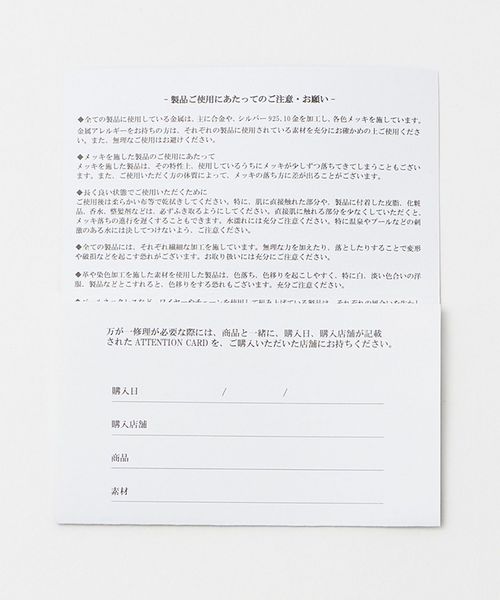 - 製品ご使用にあたってのご注意・お願い -
◆全ての製品に使用している金属は、主に合金や、シルバー925、10金を加工し、各色メッキを施しています。
金属アレルギーをお持ちの方は、それぞれの製品に使用されている素材を充分にお確かめの上ご使用くださ
い。また、無理なご使用はお避けください。
◆メッキを施した製品のご使用にあたって
メッキを施した製品は、その特性上、使用しているうちにメッキが少しずつ落ちてきてしまうこともござい
ます。また、ご使用いただく方の体質によって、メッキの落ち方に差が出ることがございます。
◆長く良い状態でご使用いただくために
ご使用後は柔らかい布等で乾拭きしてください。特に、肌に直接触れた部分や、製品に付着した皮脂、化粧
品、香水、整髪剤などは、必ずふき取るようにしてください。直接肌に触れる部分を少なくしていただくと、
メッキ落ちの進行を遅くすることもできます。水濡れには充分ご注意ください。特に温泉やプールなどの刺
激のある水には決してつけないよう、ご注意ください。
◆全ての製品には、それぞれ繊細な加工を施しています。無理な力を加えたり、落としたりすることで変形
や破損などを起こす恐れがございます。お取り扱いには充分にご注意ください。
◆革や染色加工を施した素材を使用した製品は、色落ち、色移りを起こしやすく、特に白、淡い色合いの洋
服、製品などとこすれると、色移りをする恐れもございます。充分ご注意ください。
万が一修理が必要な際には、商品と一緒に、購入日、購入店舗が記載
された ATTENTION CARD を、ご購入いただいた店舗にお持ちください。
購入日 / /
購入店舗
商品
素材